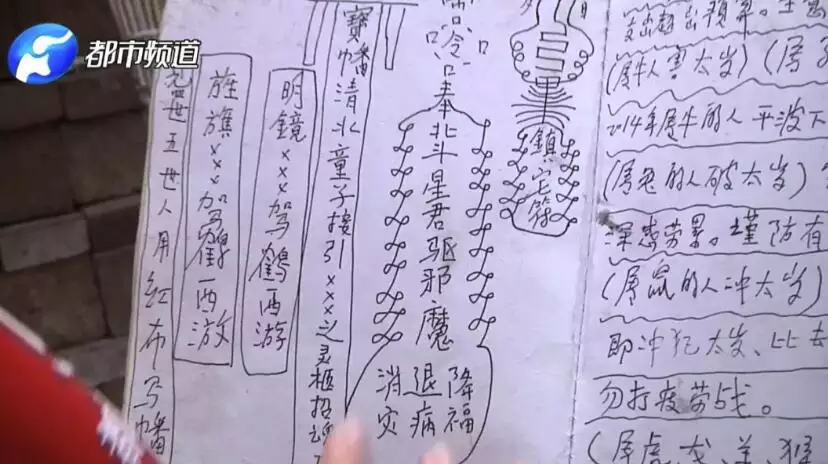 都市频道
五世人用红布写幡
旌旗×××驾鹤西游
明鏡×××驾鶴西游
寶幡清北童子接引×××之灵柩招魂
奉北斗星君驱邪魔
消灾
退病
降福
鎮宅符
(属牛人害太岁)
2014年属牛的人平波下
(属兔的人破太岁)
深感劳累。谨防有
(属鼠的人冲太岁)
即冲犯太岁、比去
勿打疲劳战。
(属虎、龙、羊、猴